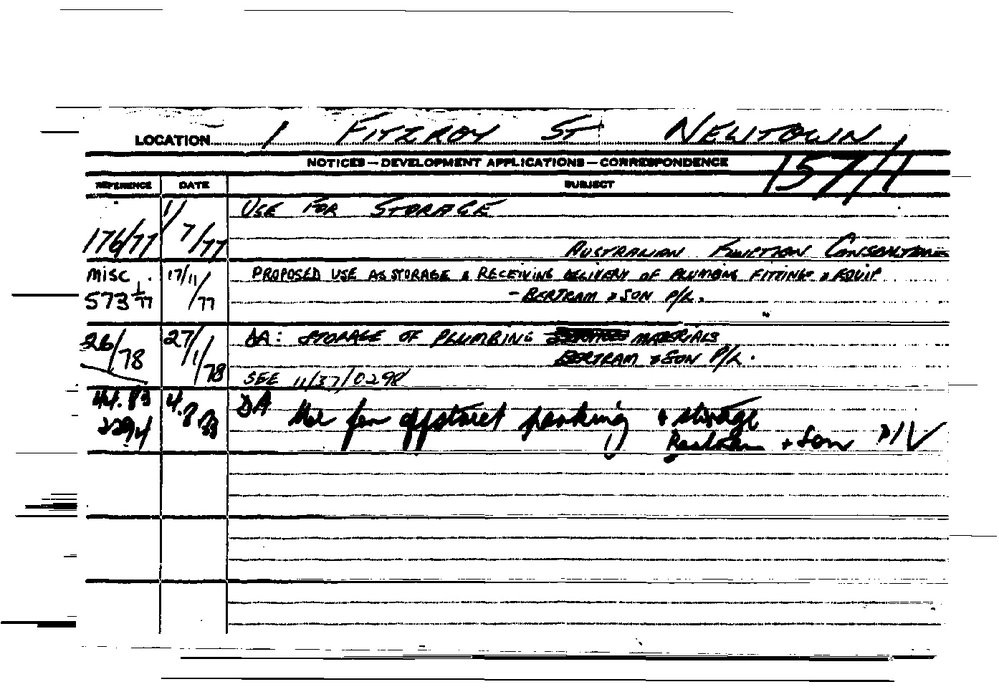 LOCATION 1 FITZROY ST NEWTOWN
NOTICES — DEVELOPMENT APPLICATIONS — CORRESPONDENCE
157/1
REFERENCE DATE SUBJECT
176/77 1/7/77 USE FOR STORAGE
AUSTRALIAN FUNCTION
MISC. 17/11/77 PROPOSED USE AS STORAGE & RECEIVING DELIVERY OF PLUMBING FITTINGS & EQUIP
573 1/77 - BERTRAM & SON P/L.
26/78 27/1/78 DA: STORAGE OF PLUMBING MATERIALS
BERTRAM & SON P/L.
SEE 11/37/0298
44.83 4.8.83 DA Use for offstreet parking & storage
2294 Bertram & Son P/L